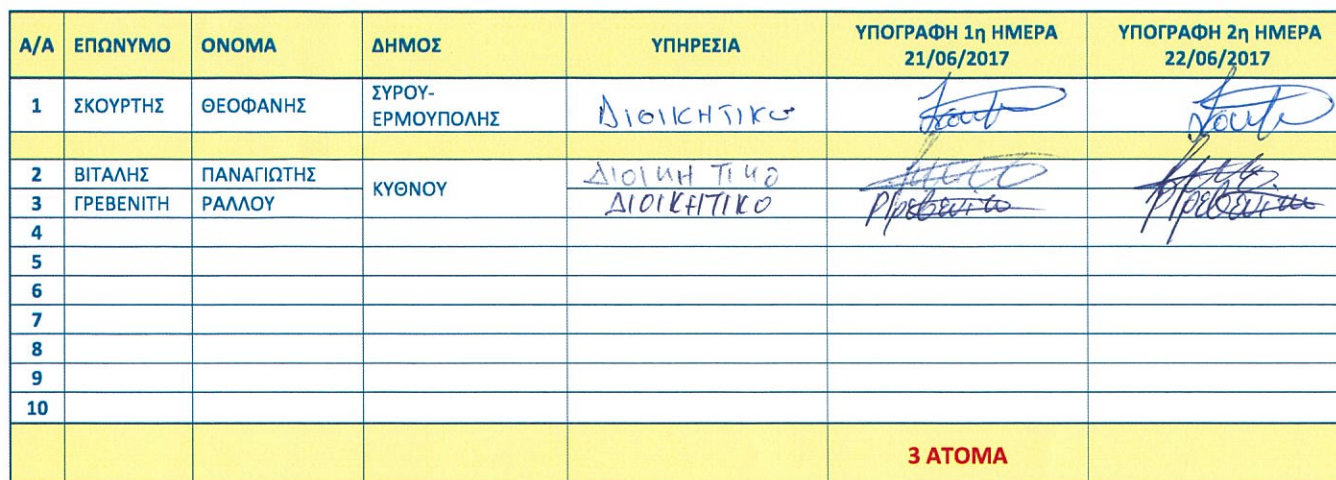 Α/Α ΕΠΩΝΥΜΟ ΟΝΟΜΑ ΔΗΜΟΣ ΥΠΗΡΕΣΙΑ ΥΠΟΓΡΑΦΗ 1η ΗΜΕΡΑ 21/06/2017 ΥΠΟΓΡΑΦΗ 2η ΗΜΕΡΑ 22/06/2017
1 ΣΚΟΥΡΤΗΣ ΘΕΟΦΑΝΗΣ ΣΥΡΟΥ-ΕΡΜΟΥΠΟΛΗΣ ΔΙΟΙΚΗΤΙΚΟ
2 ΒΙΤΑΛΗΣ ΠΑΝΑΓΙΩΤΗΣ ΚΥΘΝΟΥ ΔΙΟΙΚΗΤΙΚΟ
3 ΓΡΕΒΕΝΙΤΗ ΡΑΛΛΟΥ ΔΙΟΙΚΗΤΙΚΟ
4
5
6
7
8
9
10
3 ΑΤΟΜΑ